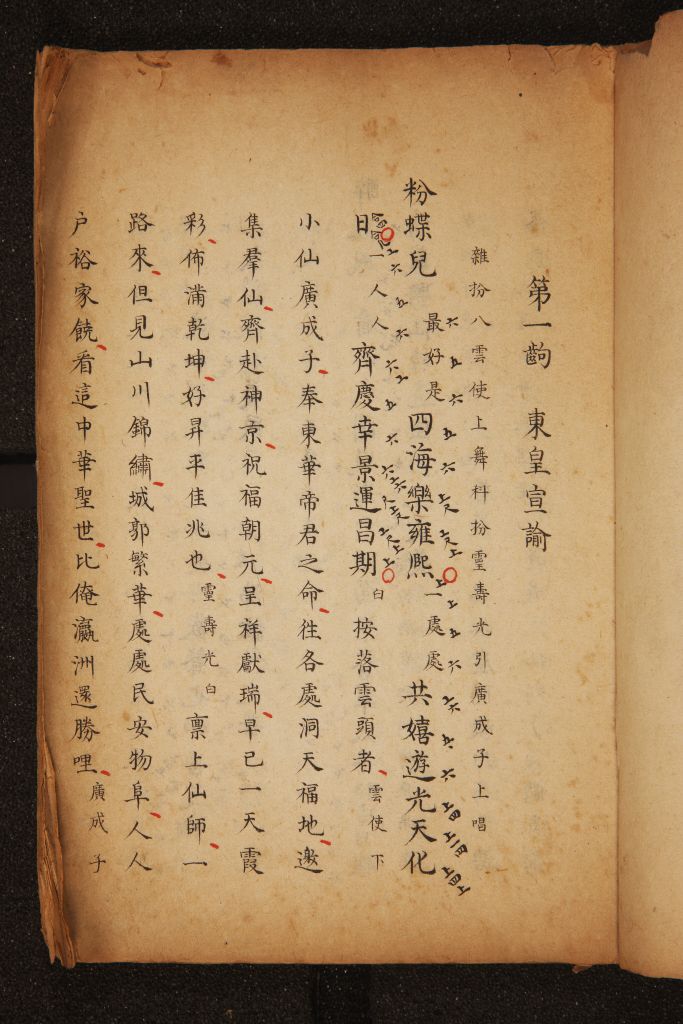 第一齣　東皇宣諭
雜扮八雲使上舞科扮靈壽光引廣成子上唱
粉蝶兒　最好是四海樂雍熙一處處共嬉遊光天化
日一人人齊慶幸景運昌期白按落雲頭者雲使下
小仙廣成子奉東華帝君之命徃各處洞天福地邀
集羣仙齊赴神京祝福朝元呈祥獻瑞早已一天霞
彩佈滿乾坤好昇平佳兆也靈壽光白禀上仙師一
路來但見山川錦繡城郭繁華處處民安物阜人人
户裕家饒看這中華聖世比俺瀛洲還勝哩廣成子